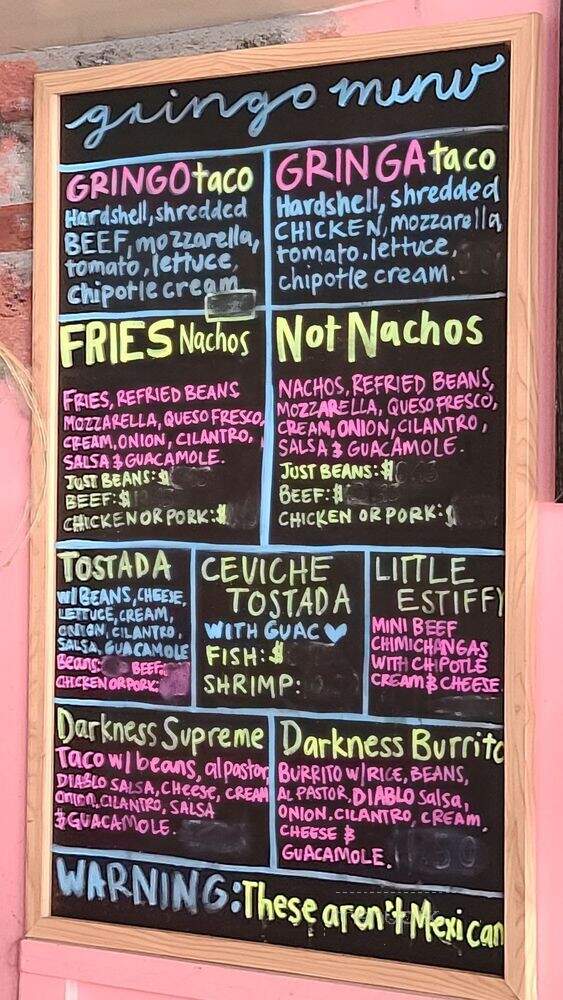 gringo menu
GRINGO taco
Hardshell, shredded
BEEF, mozzarella,
tomato, lettuce,
chipotle cream
GRINGA taco
Hardshell, shredded
CHICKEN, mozzarella,
tomato. lettuce,
chipotle cream.
FRIES Nachos
FRIES, REFRIED BEANS
MOZZARELLA, QUESO FRESCO,
CREAM, ONION, CILANTRO,
SALSA & GUACAMOLE.
JUST BEANS: $
BEEF: $
CHICKEN OR PORK: $
Not Nachos
NACHOS, REFRIED BEANS,
MOZZARELLA, QUESO FRESCO,
CREAM, ONION, CILANTRO,
SALSA & GUACAMOLE.
JUST BEANS: $
BEEF: $
CHICKEN OR PORK: $
TOSTADA
W/ BEANS, CHEESE,
LETTUCE, CREAM,
ONION, CILANTRO,
SALSA, GUACAMOLE
Beans: BEEF:
CHICKEN OR PORK:
CEVICHE
TOSTADA
WITH GUAC
FISH: $
SHRIMP:
LITTLE
ESTIFFY
MINI BEEF
CHIMICHANGAS
WITH CHIPOTLE
CREAM & CHEESE.
Darkness Supreme
Taco w/ beans, al pastor,
DIABLO SALSA, CHEESE, CREAM
Onion, CILANTRO, SALSA
& GUACAMOLE.
Darkness Burrito
BURRITO W/ RICE, BEANS,
AL PASTOR, DIABLO Salsa,
ONION. CILANTRO, CREAM,
CHEESE &
GUACAMOLE.
WARNING: These aren't Mexican